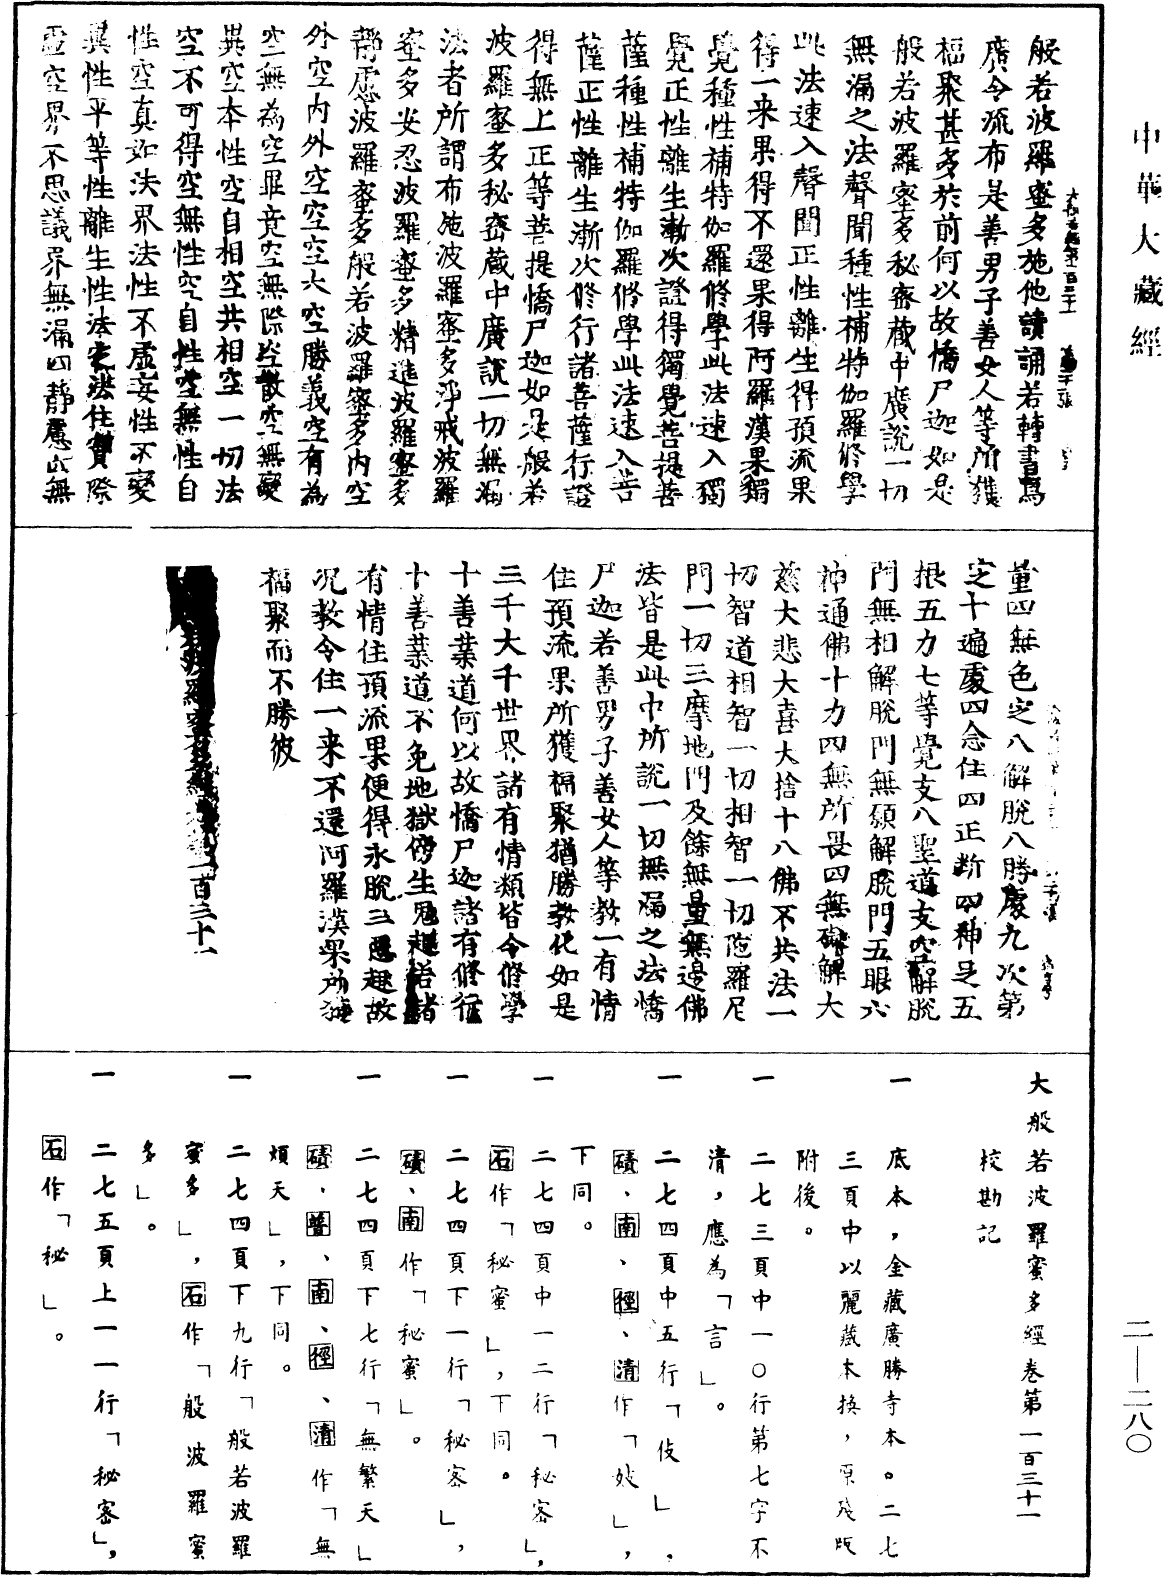 中華大藏經
般若波羅蜜多施他讀誦若轉書寫
廣令流布是善男子善女人等所獲
福聚甚多於前何以故憍尸迦如是
般若波羅蜜多秘密藏中廣說一切
無漏之法聲聞種性補特伽羅修學
此法速入聲聞正性離生得預流果
得一来果得不還果得阿羅漢果獨
覺種性補特伽羅修學此法速入獨
覺正性離生漸次證得獨覺菩提菩
薩種性補特伽羅修學此法速入菩
薩正性離生漸次修行諸菩薩行證
得無上正等菩提憍尸迦如是般若
波羅蜜多秘密藏中廣說一切無漏
法者所謂布施波羅蜜多淨戒波羅
蜜多安忍波羅蜜多精進波羅蜜多
靜慮波羅蜜多般若波羅蜜多內空
外空內外空空空大空勝義空有為
空無為空畢竟空無際空散空無變
異空本性空自相空共相空一切法
空不可得空無性空自性空無性自
性空真如法界法性不虛妄性不變
異性平等性離生性法定法住實際
虛空界不思議界無漏四靜慮四無
量四無色定八解脫八勝處九次第
定十遍處四念住四正断四神足五
根五力七等覺支八聖道支空解脫
門無相解脫門無願解脫門五眼六
神通佛十力四無所畏四無礙解大
慈大悲大喜大捨十八佛不共法一
切智道相智一切相智一切陁羅尼
門一切三摩地門及餘無量無邊佛
法皆是此中所說一切無漏之法憍
尸迦若善男子善女人等教一有情
住預流果所獲福聚猶勝教化如是
三千大千世界諸有情類皆令修學
十善業道何以故憍尸迦諸有修行
十善業道不免地獄傍生鬼趣若諸
有情住預流果便得永脫三惡趣故
況教令住一来不還阿羅漢果所獲
福聚而不勝彼
波羅蜜多經 一百三十一
大般若波羅蜜多經卷第一百三十一
校勘記
一 底本，金藏廣勝寺本。二七
三頁中以麗藏本換，原殘版
附後。
一 二七三頁中一〇行第七字不
清，應為「言」。
一 二七四頁中五行「伎」，
磧、南、徑、清作「妓」，
下同。
一 二七四頁中一二行「秘密」，
石作「秘蜜」，下同。
一 二七四頁下一行「秘密」，
磧、南作「秘蜜」。
一 二七四頁下七行「無繁天」
磧、普、南、徑、清作「無
煩天」，下同。
一 二七四頁下九行「般若波羅
蜜多」，石作「般波羅蜜
多」。
一 二七五頁上一一行「秘密」，
石作「秘」。
二—二八〇